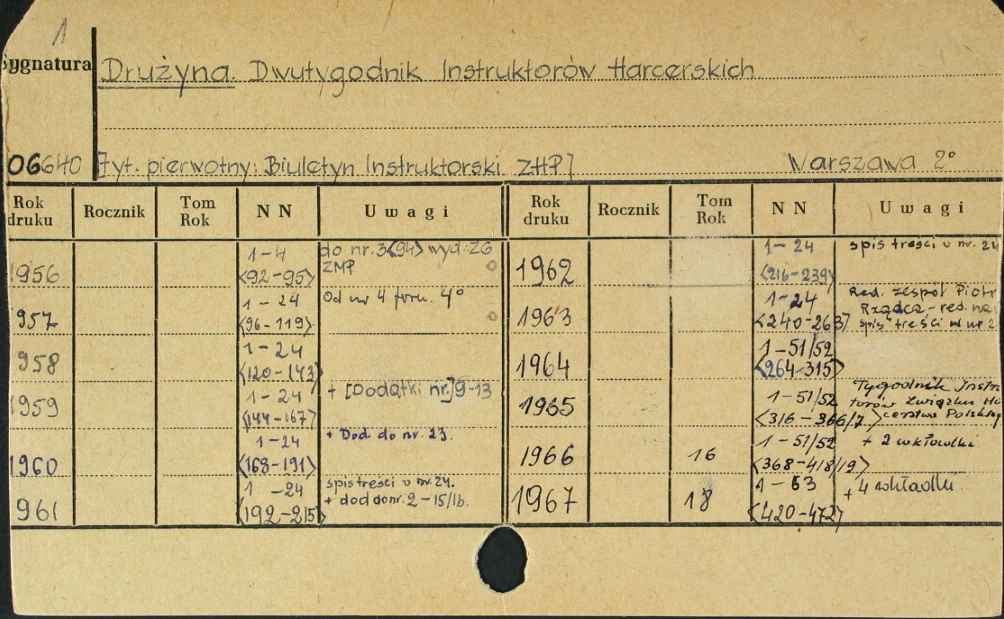 1
Sygnatura Drużyna. Dwutygodnik Instruktorów Harcerskich
06640 [Tyt. pierwotny: Biuletyn Instruktorski ZHP] Warszawa 2°
Rok druku Rocznik Tom Rok NN Uwagi Rok druku Rocznik Tom Rok NN Uwagi
1956 1-4 <92-95> do nr. 3<94> wyd: ZG ZMP
957 1-24 <96-119> Od nr 4 form. 4°
958 1-24 <120-143>
1959 1-24 <144-167> + [Dodatki nr.] 9-13
1960 1-24 <168-191> + Dod. do nr. 23.
961 1-24 <192-215> spis treści v nr. 24. + dod do nr. 2-15/16.
1962 1-24 <216-239> spis treści v nr. 24
1963 1-24 <240-263> Red. zespół Piotr Rządca - red. na spis treści w nr 2
1964 1-51/52 <264-315>
1965 1-51/52 <316-366/7> Tygodnik Instr torów Związku Ha cerstwa Polskieg
1966 16 1-51/52 <368-418/19> + 2 wkładki
1967 18 1-53 <420-472> + 4 wkładki.